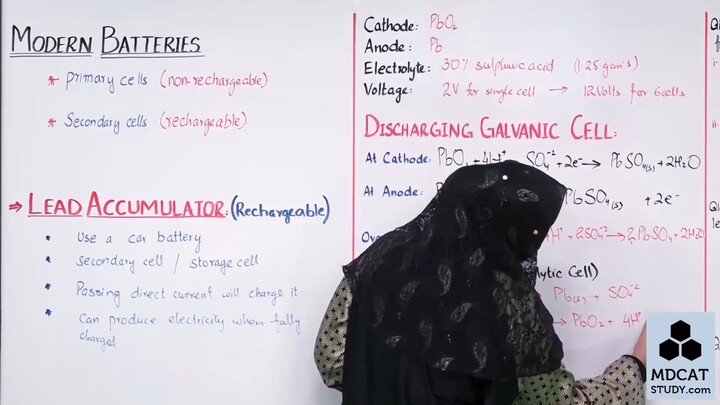 MODERN BATTERIES
* Primary cells (non-rechargeable)
* Secondary cells (rechargeable)
⇒ LEAD ACCUMULATOR: (Rechargeable)
• Use a car battery
• Secondary cell / storage cell
• Passing direct current will charge it
• Can produce electricity when fully
charged
Cathode: PbO₂
Anode: Pb
Electrolyte: 30% sulphuric acid (1.25 gcm⁻³)
Voltage: 2V for single cell → 12 Volts for 6 cells
DISCHARGING GALVANIC CELL:
At Cathode: PbO + 4H⁺ SO₄⁻² + 2e⁻ → PbSO₄(s) + 2H₂O
At Anode: PbSO₄(s) + 2e⁻
H⁺ + 2SO₄⁻² → 2PbSO₄ + 2H₂O
Cell)
Pb(s) + SO₄⁻²
→ PbO₂ + 4H⁺
MDCAT
STUDY.com